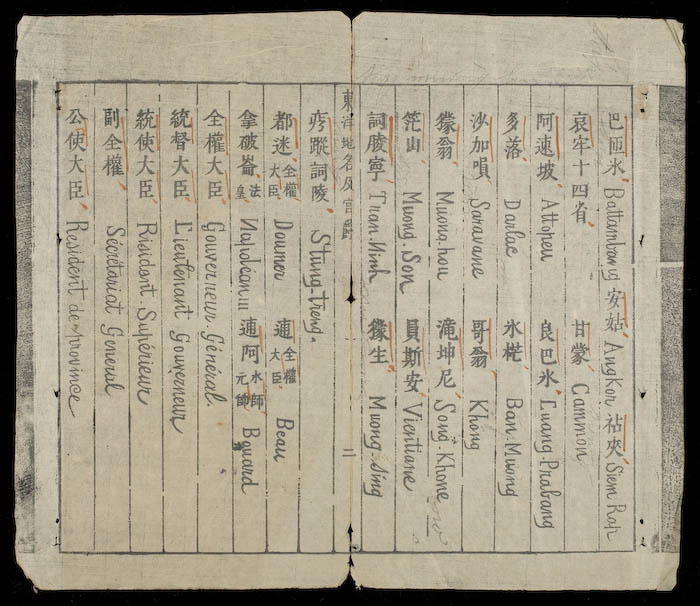 巴匝氷 Battambang 安姑 Angkor 祜夾 Siem Rap
哀牢十四省 甘蒙 Cammon
阿速坡 Attopeu 良巴氷 Luang Prabang
多落 Darlac 氷椛 Ban Muong
沙加唄 Saravane 哥翁 Khong
翁 Muong hou 滝坤尼 Song Khone
茫山 Muong Son 員斯安 Vientiane
詞陵寧 Tran Ninh 生 Muong Sing
東洋地名及官爵 二
蹤詞陵 Stung-treng.
都迷 全權大臣 Doumer 逋 全權大臣 Beau
拿破崙 法皇 Napoléon III 逋阿 水師元帥 Bouard
全權大臣 Gouverneur Général.
統督大臣 Lieutenant Gouverneur
統使大臣 Résident Supérieur
副全權 Sécrétariat General
公使大臣 Resident de province